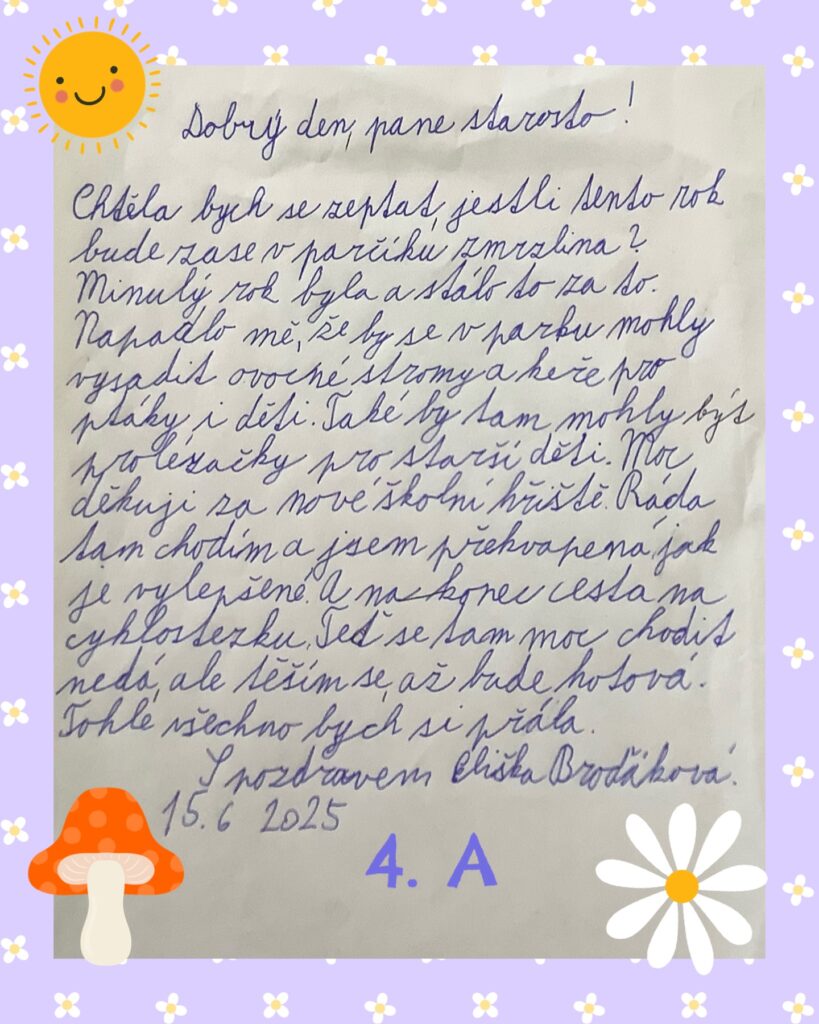 Dobrý den, pane starosto!
Chtěla bych se zeptat, jestli tento rok
bude zase v parčíku zmrzlina?
Minulý rok byla a stálo to za to.
Napadlo mě, že by se v parku mohly
vysadit ovocné stromy a keře pro
ptáky i děti. Také by tam mohly být
prolézačky pro starší děti. Moc
děkuji za nové školní hřiště. Ráda
tam chodím a jsem překvapená, jak
je vylepšené. A na konec cesta na
cyklostezku. Teď se tam moc chodit
nedá, ale těším se, až bude hotová.
Tohle všechno bych si přála.
S pozdravem Eliška Broďáková.
15. 6 2025
4. A